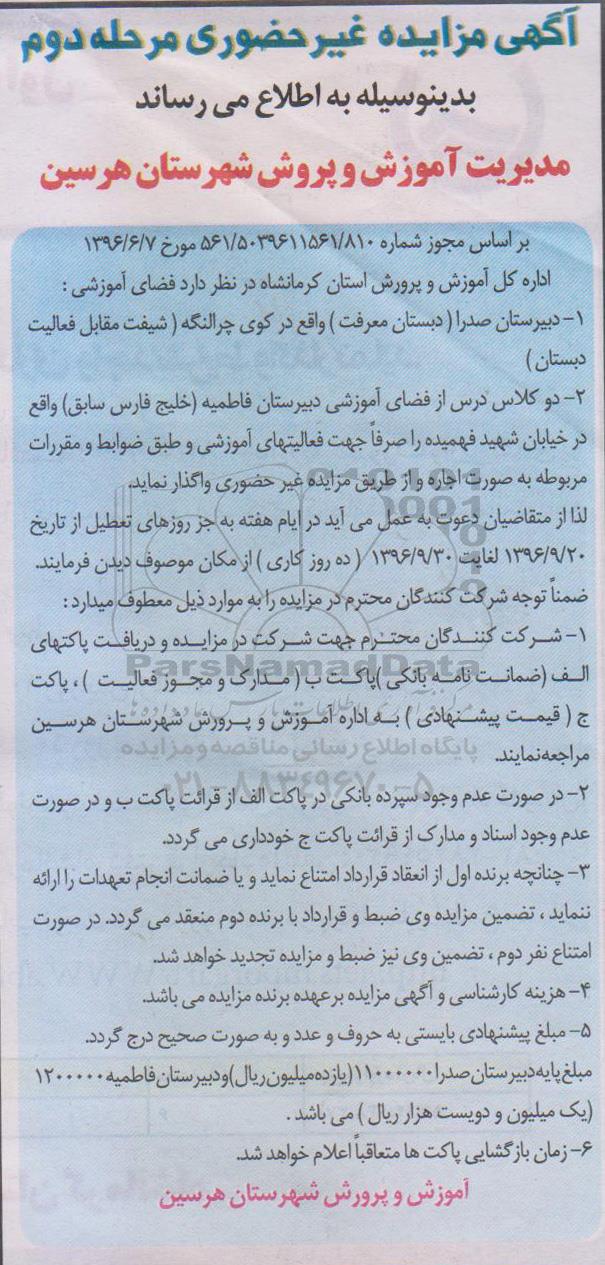 آگهی مزایده غیرحضوری مرحله دوم
بدینوسیله به اطلاع می رساند
مدیریت آموزش و پروش شهرستان هرسین
بر اساس مجوز شماره ۵۶۱/۵۰۳۹۶۱۱۵۶۱/۸۱۰ مورخ ۱۳۹۶/۶/۷
اداره کل آموزش و پرورش استان کرمانشاه در نظر دارد فضای آموزشی :
۱- دبیرستان صدرا ( دبستان معرفت ) واقع در کوی چرالنگه ( شیفت مقابل فعالیت
دبستان )
۲- دو کلاس درس از فضای آموزشی دبیرستان فاطمیه (خلیج فارس سابق) واقع
در خیابان شهید فهمیده را صرفاً جهت فعالیتهای آموزشی و طبق ضوابط و مقررات
مربوطه به صورت اجاره و از طریق مزایده غیر حضوری واگذار نماید.
لذا از متقاضیان دعوت به عمل می آید در ایام هفته به جز روزهای تعطیل از تاریخ
۱۳۹۶/۹/۲۰ لغایت ۱۳۹۶/۹/۳۰ ( ده روز کاری ) از مکان موصوف دیدن فرمایند.
ضمناً توجه شرکت کنندگان محترم در مزایده را به موارد ذیل معطوف میدارد :
۱- شرکت کنندگان محترم جهت شرکت در مزایده و دریافت پاکتهای
الف (ضمانت نامه بانکی )پاکت ب ( مدارک و مجوز فعالیت ) ، پاکت
ParsNamadData
ج ( قیمت پیشنهادی ) به اداره آموزش و پرورش شهرستان هرسین
پایگاه اطلاع رسانی مناقصه و مزایده
مراجعه‌نمایند.
۰۲۱-۸۸۳۴۹۶۷۰-۵
۲- در صورت عدم وجود سپرده بانکی در پاکت الف از قرائت پاکت ب و در صورت
عدم وجود اسناد و مدارک از قرائت پاکت ج خودداری می گردد.
۳- چنانچه برنده اول از انعقاد قرارداد امتناع نماید و یا ضمانت انجام تعهدات را ارائه
ننماید ، تضمین مزایده وی ضبط و قرارداد با برنده دوم منعقد می گردد. در صورت
امتناع نفر دوم ، تضمین وی نیز ضبط و مزایده تجدید خواهد شد.
۴- هزینه کارشناسی و آگهی مزایده برعهده برنده مزایده می باشد.
۵- مبلغ پیشنهادی بایستی به حروف و عدد و به صورت صحیح درج گردد.
مبلغ پایه دبیرستان صدرا ۱۱۰۰۰۰۰۰ (یازده میلیون ریال) و دبیرستان فاطمیه ۱۲۰۰۰۰۰
(یک میلیون و دویست هزار ریال ) می باشد .
۶- زمان بازگشایی پاکت ها متعاقباً اعلام خواهد شد.
آموزش و پرورش شهرستان هرسین